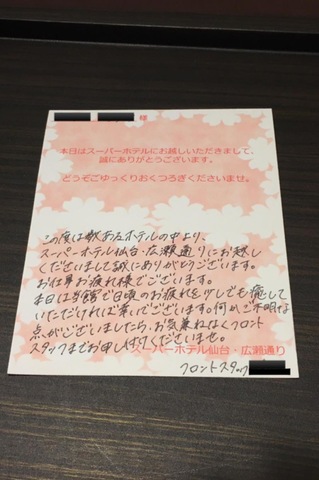 様
本日はスーパーホテルにお越しいただきまして、
誠にありがとうございます。
どうぞごゆっくりおくつろぎくださいませ。
この度は数あるホテルの中より、
スーパーホテル仙台・広瀬通りにお越し
くださいまして誠にありがとうございます。
お仕事お疲れ様でございます。
本日は当館で日頃のお疲れを少しでも癒して
いただければ幸いでございます。何かご不明な
点がございましたら、お気兼ねなくフロント
スタッフまでお申し付けくださいませ。
スーパーホテル仙台・広瀬通り
フロントスタッフ